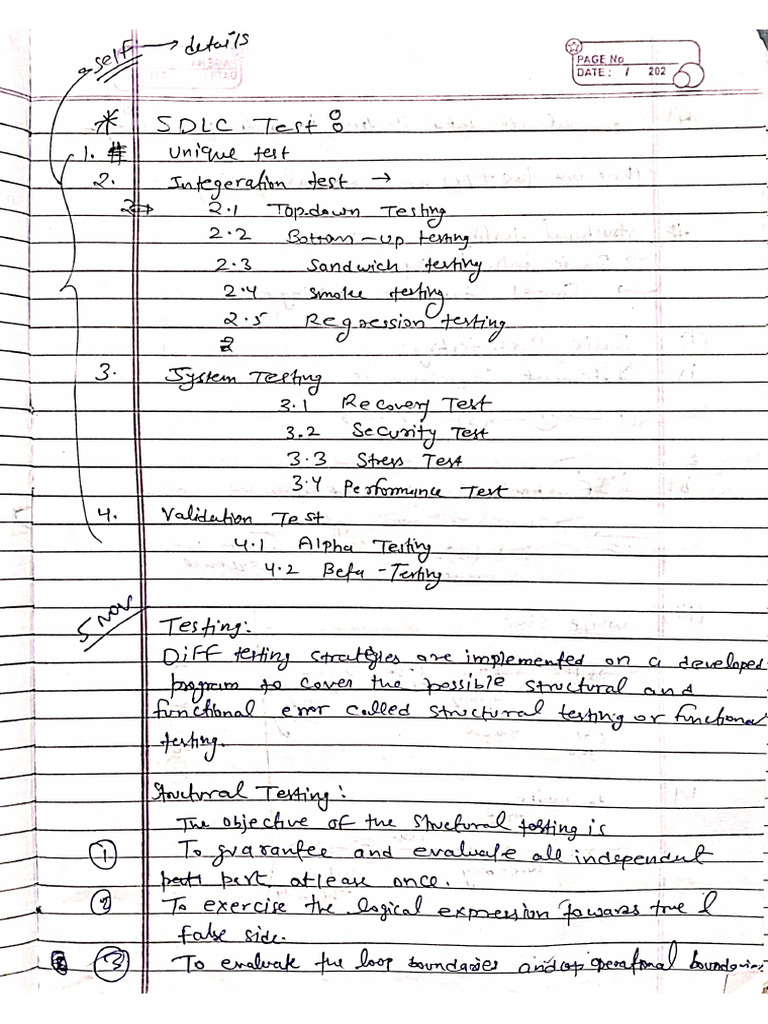 self → details
PAGE No
DATE: / 202
* SDLC Test :
1. # Unique test
2. Integeration test →
2.1 Topdown Testing
2.2 Bottom-up testing
2.3 Sandwich testing
2.4 Smoke testing
2.5 Regression testing
2
3. System Testing
3.1 Recovery Test
3.2 Security Test
3.3 Stress Test
3.4 Performance Test
4. Validation Test
4.1 Alpha Testing
4.2 Beta -Testing
5 Nov
Testing:
Diff testing strategies are implemented on a developed
program to cover the possible structural and
functional error called structural testing or functional
testing.
Structural Testing:
The objective of the structural testing is
① To guarantee and evaluate all independent
part atlease once.
② To exercise the logical expression towards true &
false side.
③ To evaluate the loop boundaries and operational boundaries